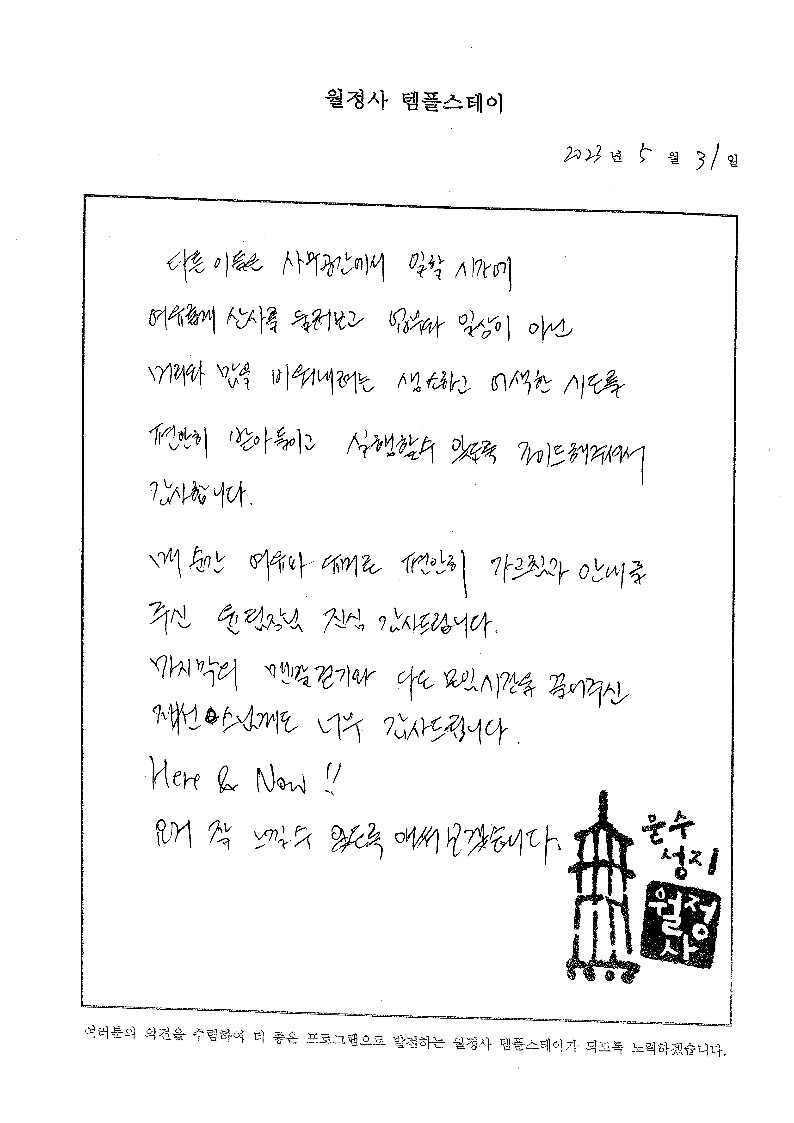 월정사 템플스테이
2023년 5월 31일
다른 이들은 사무공간에서 일할 시간에
여유롭게 산사를 둘러보고 업무와 일상이 아닌
머리와 맘을 비워내려는 생소하고 어색한 시도를
편안히 받아들이고 실행할수 있도록 가이드해주셔서
감사합니다.
매 순간 여유와 때로 편안히 가르침과 안내를
주신 팀장님 진심 감사드립니다.
마지막의 맨발걷기와 다도 모임시간을 끌어주신
스님께도 너무 감사드립니다.
Here & Now !!
요거 잘 느낄수 있도록 애써보겠습니다.
문수
성지
월정
사
여러분의 의견을 수렴하여 더 좋은 프로그램으로 발전하는 월정사 템플스테이가 되도록 노력하겠습니다.